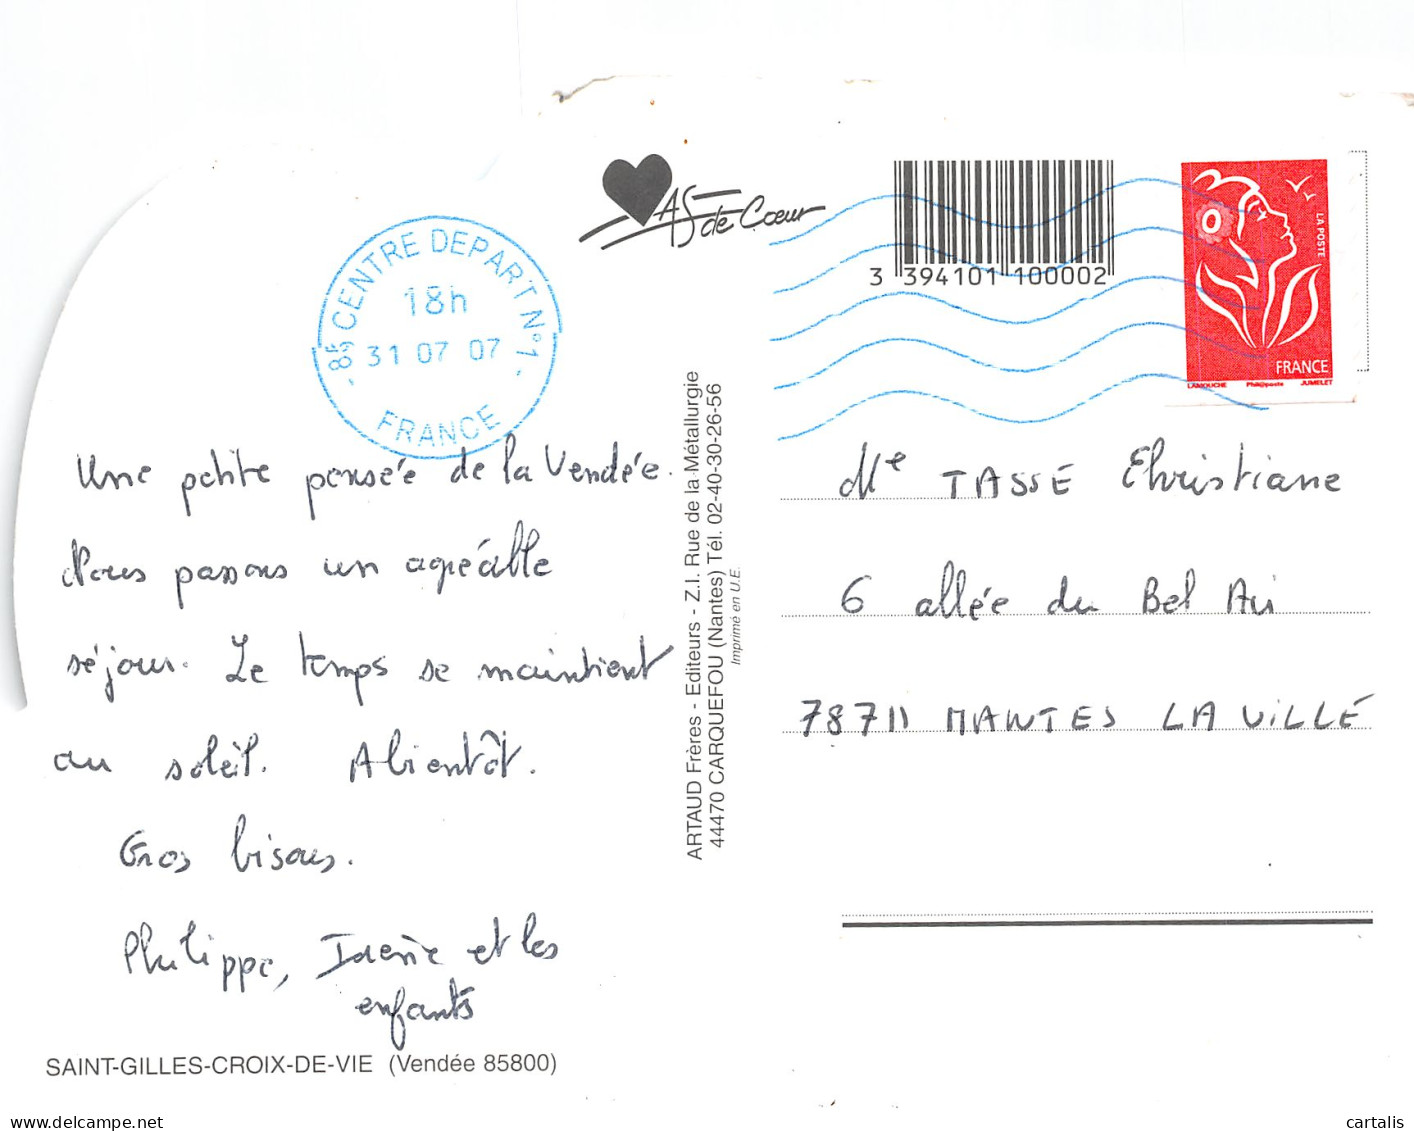 AS de Cœur
3 394101 100002
85 CENTRE DEPART N°1
18h
31 07 07
FRANCE
LA POSTE
FRANCE
LAMOUCHE Phil@poste JUMELET
Une petite pensée de la Vendée.
Nous passons un agréable
séjour. Le temps se maintient
au soleil. A bientôt.
Gros bisous.
Philippe, et les
enfants
SAINT-GILLES-CROIX-DE-VIE (Vendée 85800)
ARTAUD Frères - Editeurs - Z.I. Rue de la Métallurgie
44470 CARQUEFOU (Nantes) Tél. 02-40-30-26-56
Imprimé en U.E.
Me TASSE Christiane
6 allée du Bel Air
78711 MANTES LA VILLE
delcampe.net
cartalis